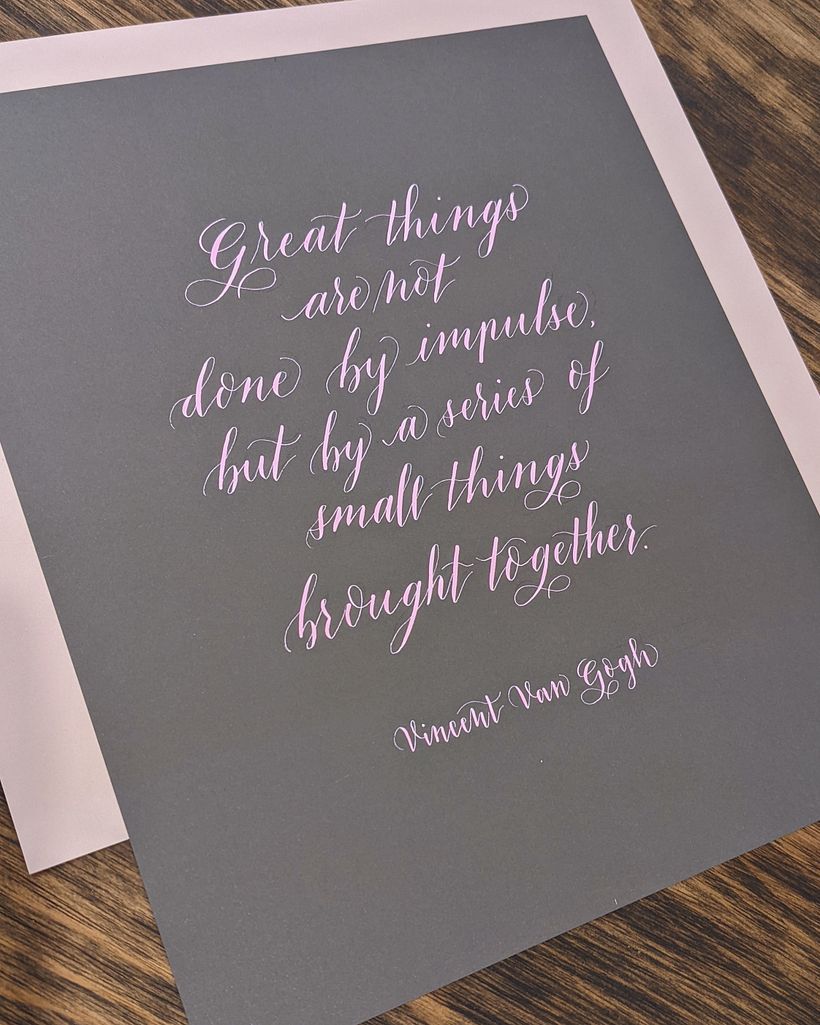 Great things
are not
done by impulse,
but by a series of
small things
brought together.
Vincent Van Gogh